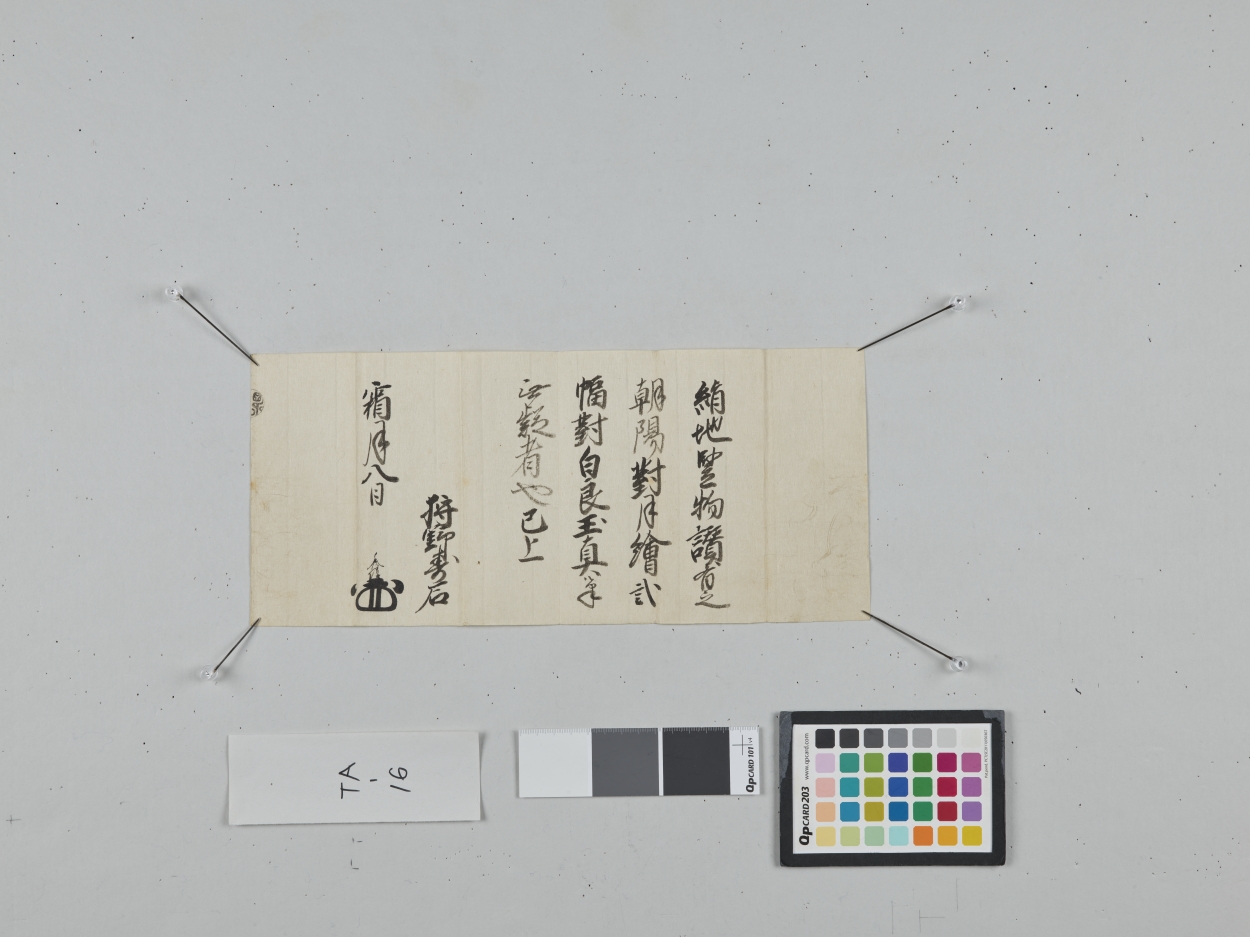 絹地竪物讃有之
朝陽對月繪弐
幅對自良玉真筆
無疑者也已上
狩野寿石
霜月八日
TA
-
16
QpCARD 101 v4
QpCARD 203
www.qpcard.com